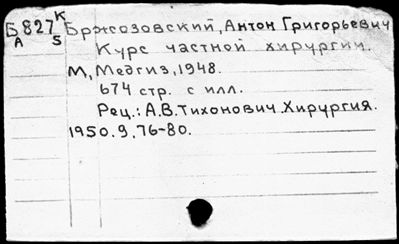 Б827 К Бржозовский, Антон Григорьевич
А S Курс частной хирургии.
М, Медгиз, 1948.
674 стр. с илл.
Рец.: А.В.Тихонович. Хирургия.
1950.9,76-80.